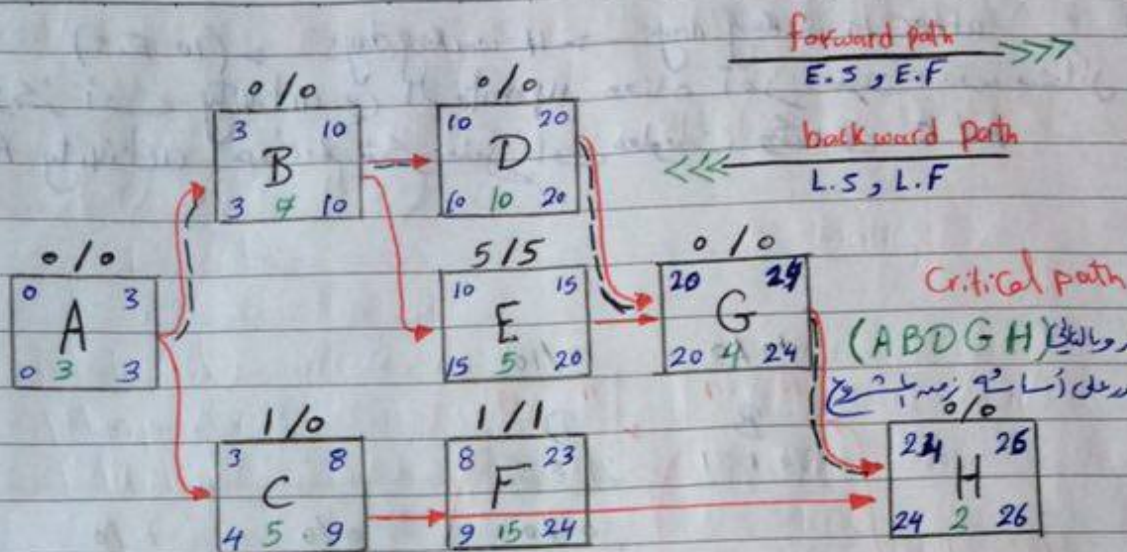 forward path
E.S , E.F
backward path
L.S , L.F
0/0
3 10
B
3 7 10
0/0
10 20
D
10 10 20
0/0
0 3
A
0 3 3
5/5
10 15
E
15 5 20
0/0
20 24
G
20 4 24
Critical path
(ABDGH)
1/0
3 8
C
4 5 9
1/1
8 23
F
9 15 24
0/0
24 26
H
24 2 26